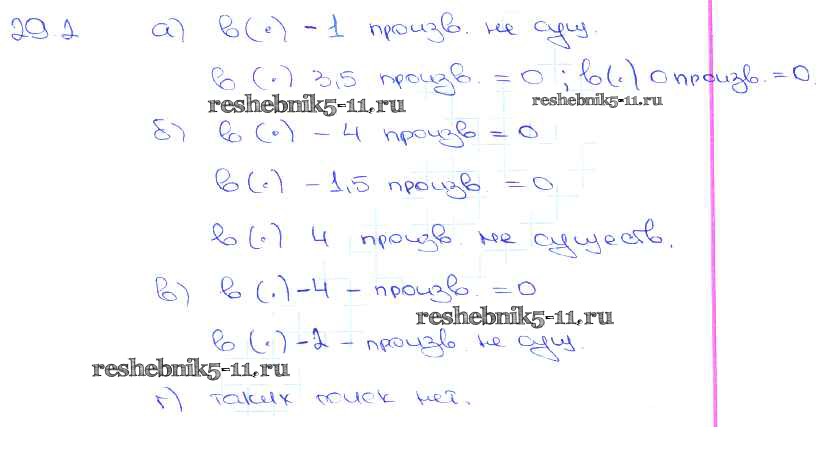 29.2 а) в (·) -1 произв. не сущ.
в (·) 3,5 произв. = 0 ; в (·) 0 произв. = 0.
reshebnik5-11.ru reshebnik5-11.ru
б) в (·) - 4 произв = 0
в (·) - 1,5 произв. = 0
в (·) 4 произв. не существ.
в) в (·) -4 - произв. = 0
reshebnik5-11.ru
в (·) -2 - произв. не сущ.
reshebnik5-11.ru
г) таких точек нет.